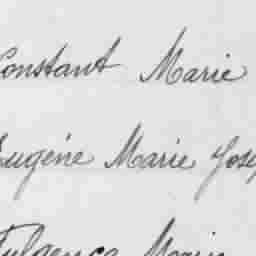 Constant Marie
Eugéne Marie Jose
Fulgence Marie